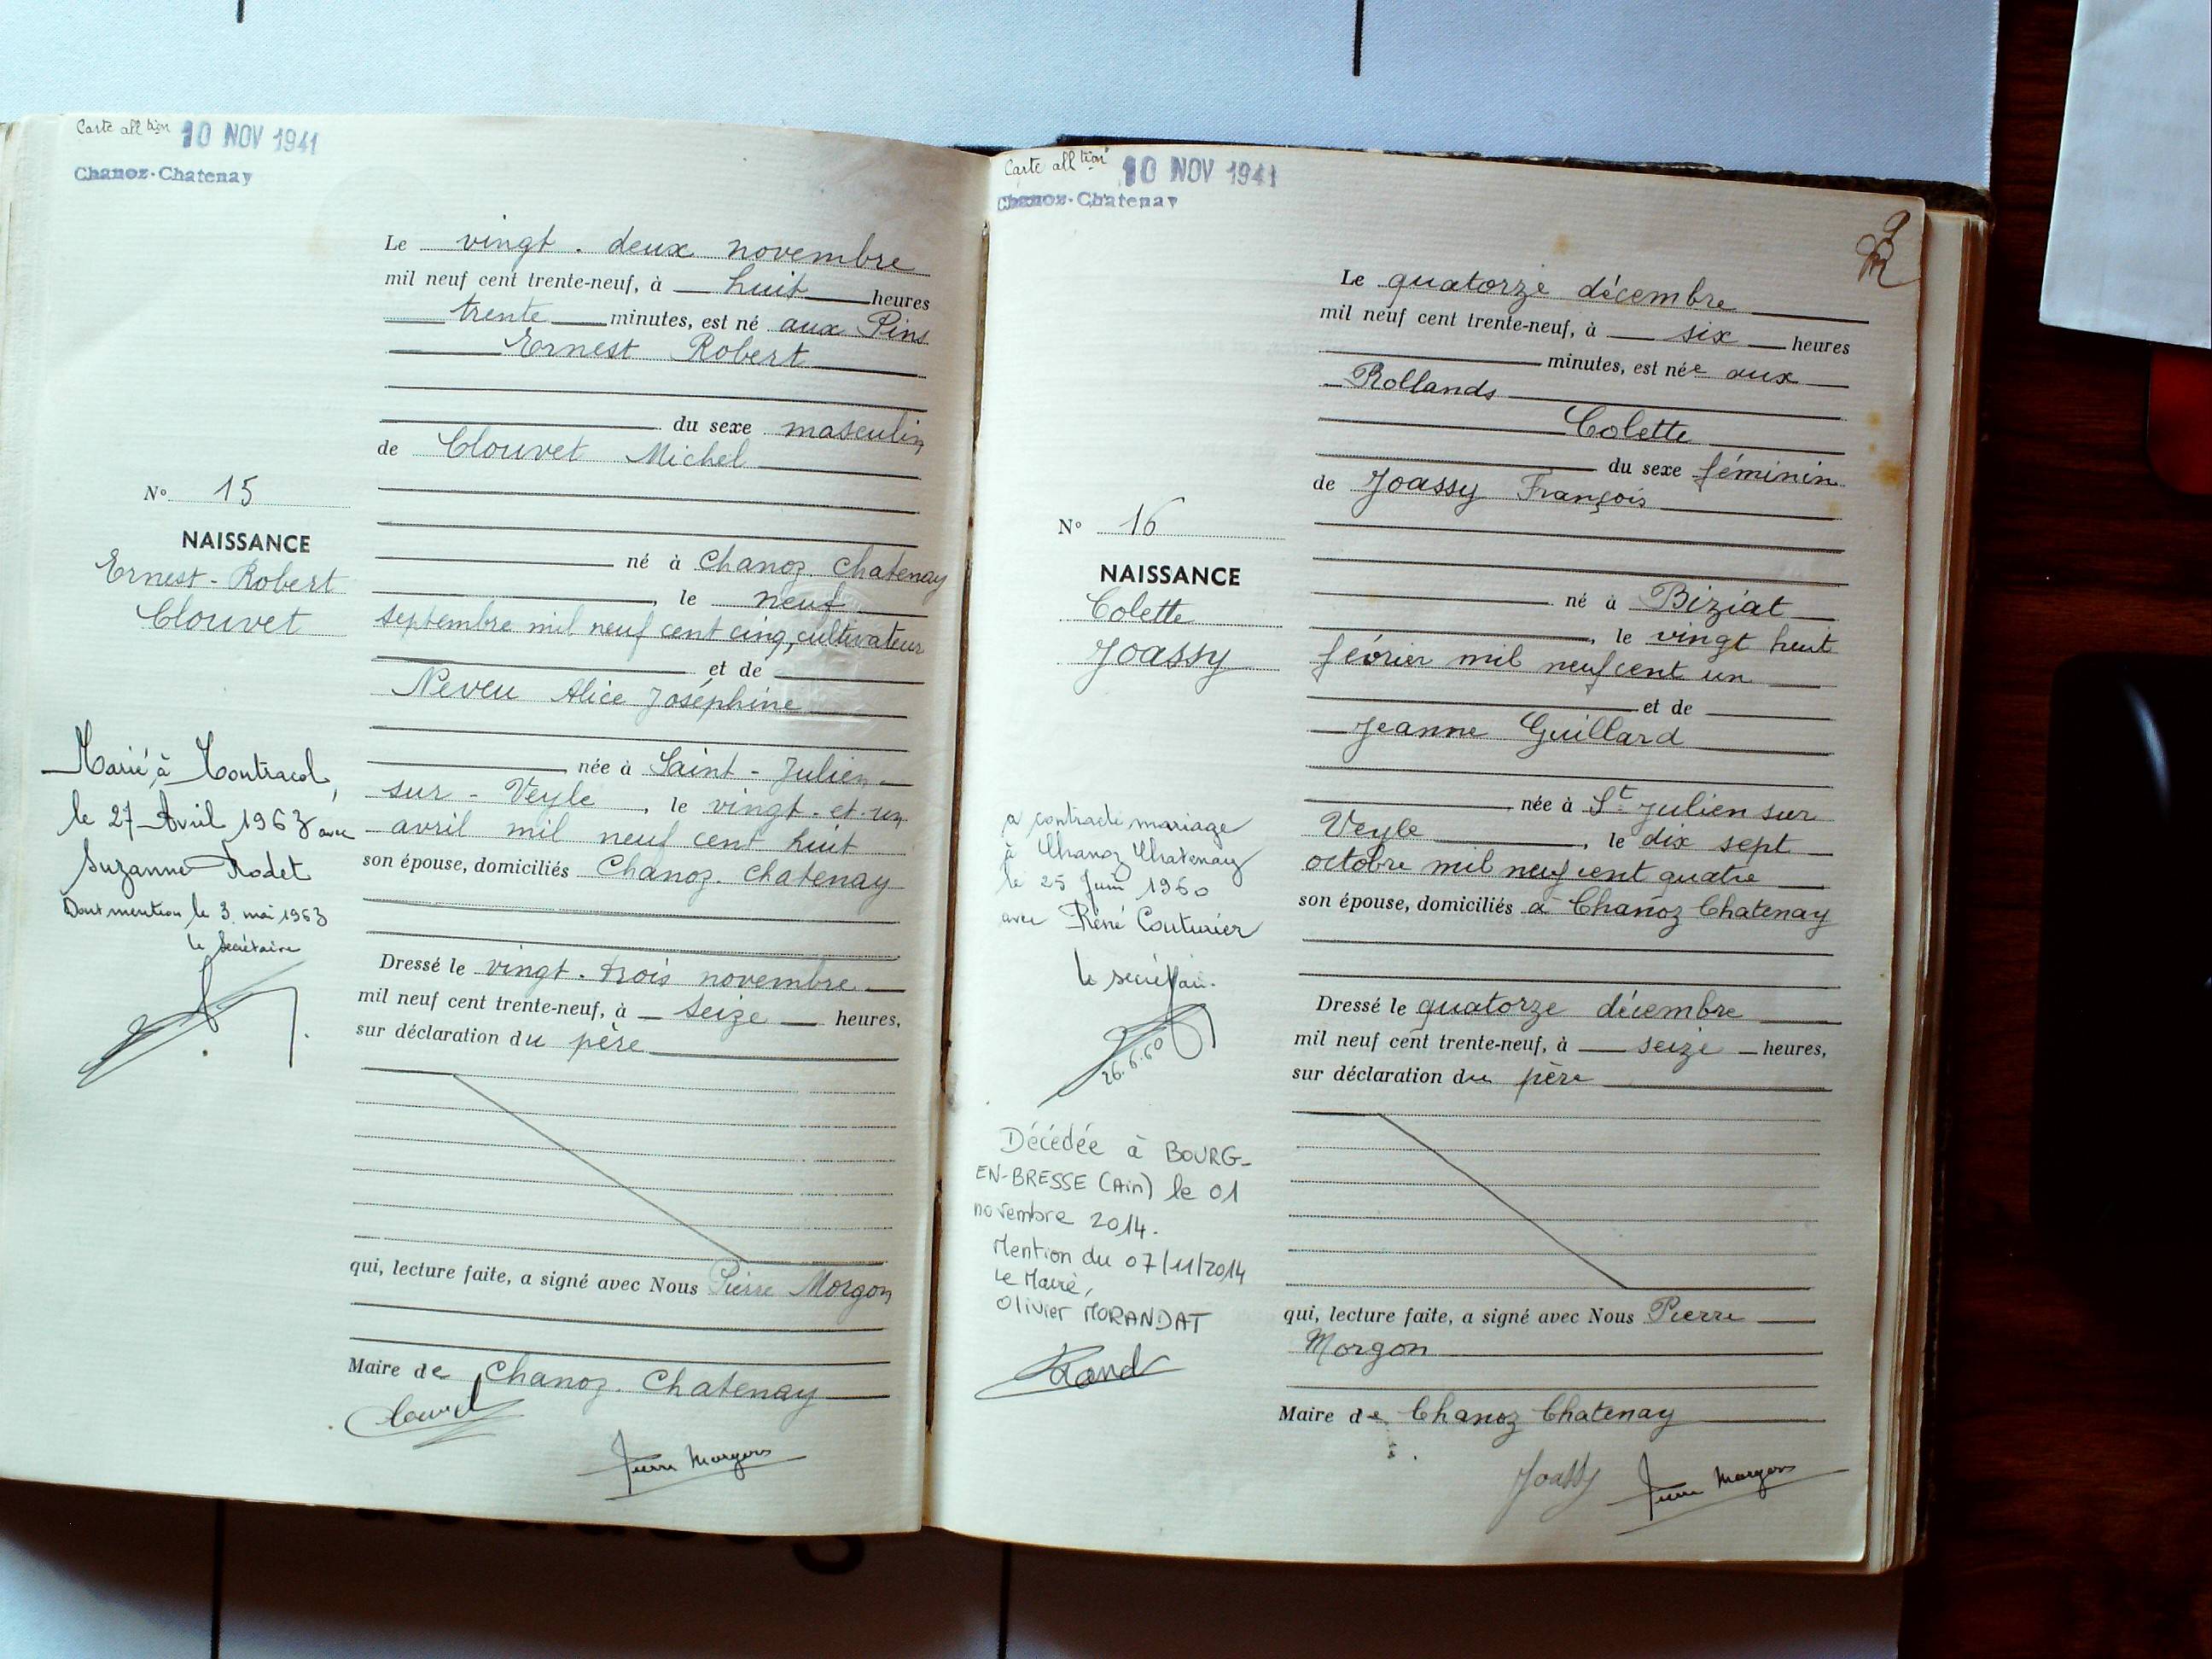 Carte all tion 10 NOV 1941
Chanoz-Chatenay
Le vingt-deux novembre
mil neuf cent trente-neuf, à huit heures
trente minutes, est né aux Pins
Ernest Robert
du sexe masculin
de Clouvet Michel
né à Chanoz-Chatenay
, le neuf
septembre mil neuf cent cinq, cultivateur
et de
Neveu Alice Joséphine
née à Saint-Julien-
sur-Veyle, le vingt-et-un
avril mil neuf cent huit
son épouse, domiciliés Chanoz-Chatenay
Dressé le vingt-trois novembre
mil neuf cent trente-neuf, à seize heures,
sur déclaration du père
qui, lecture faite, a signé avec Nous Pierre Morgon
Maire de Chanoz-Chatenay
Clouvet
Pierre Morgon
No 15
NAISSANCE
Ernest-Robert
Clouvet
Marié à Montracol,
le 27 Avril 1963 avec
Suzanne Rodet
Dont mention le 3 mai 1963
le secrétaire
Carte all tion 10 NOV 1941
Chanoz-Chatenay
9
Le quatorze décembre
mil neuf cent trente-neuf, à six heures
minutes, est née aux
Rollands
Colette
du sexe féminin
de Joassy François
né à Biziat
, le vingt huit
février mil neuf cent un
et de
Jeanne Guillard
née à St Julien sur
Veyle, le dix sept
octobre mil neuf cent quatre
son épouse, domiciliés à Chanoz Chatenay
Dressé le quatorze décembre
mil neuf cent trente-neuf, à seize heures,
sur déclaration du père
qui, lecture faite, a signé avec Nous Pierre
Morgon
Maire de Chanoz Chatenay
Joassy
Pierre Morgon
No 16
NAISSANCE
Colette
Joassy
a contracté mariage
à Chanoz Chatenay
le 25 Juin 1960
avec René Couturier
le secrétaire
26.6.60
Décédée à BOURG-
EN-BRESSE (Ain) le 01
novembre 2014.
Mention du 07/11/2014
Le Maire,
Olivier MORANDAT